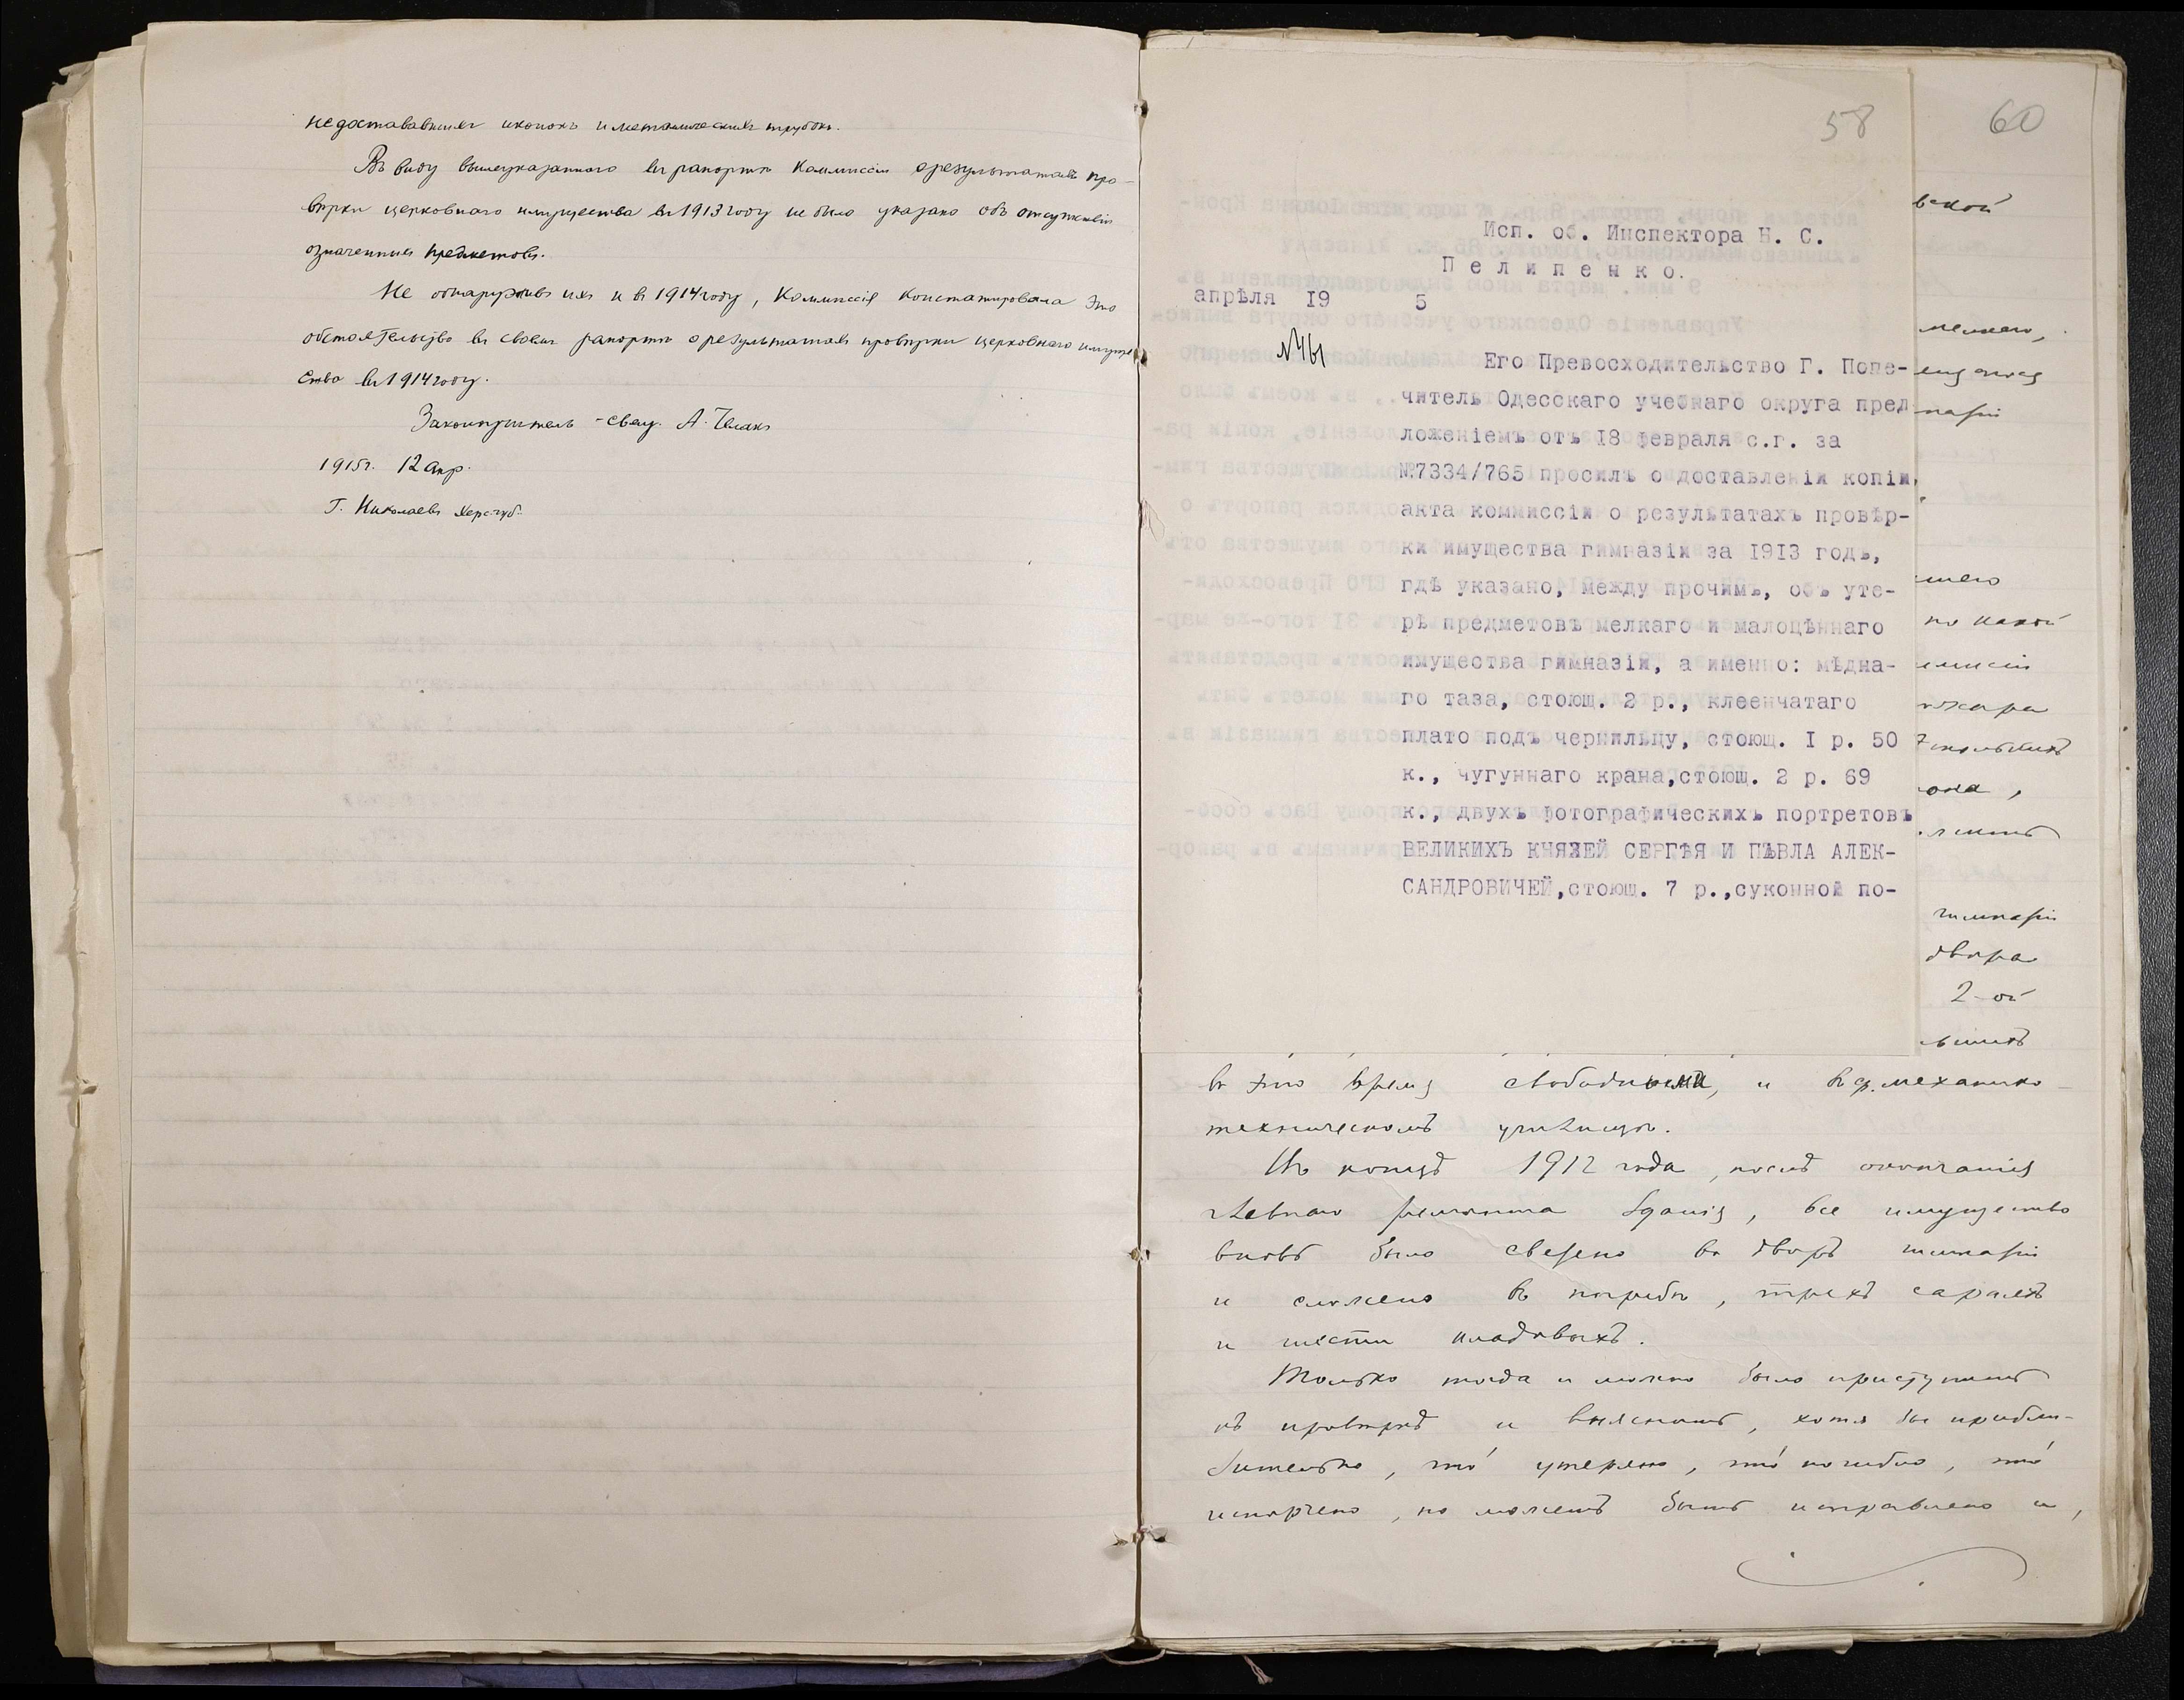 недостававшихъ иконокъ и металлическихъ трубокъ.
Въ виду вышеуказаннаго въ рапортѣ Коммиссіи о результатахъ про-
вѣрки церковнаго имущества въ 1913 году не было указано объ отсутствіи
означенныхъ предметовъ.
Не обнаруживъ ихъ и въ 1914 году, Коммиссія констатировала это
обстоятельство въ своемъ рапортѣ о результатахъ провѣрки церковнаго имуще
ства въ 1914 году.
Законоучитель - свящ. А.
1915 г. 12 апр.
Г. Николаевъ Хер. губ.
58
Исп. об. Инспектора Н. С.
Пелипенко.
апрѣля 19 5
№461
Его Превосходительство Г. Попе-
читель Одесскаго учебнаго округа пред
ложеніемъ отъ 18 февраля с.г. за
№7334/765 просилъ о доставленіи копіи
акта коммиссіи о результатахъ провѣр-
ки имущества гимназіи за 1913 годъ,
гдѣ указано, между прочимъ, объ уте-
рѣ предметовъ мелкаго и малоцѣннаго
имущества гимназіи, а именно: мѣдна-
го таза, стоющ. 2 р., клеенчатаго
плато подъ чернильцу, стоющ. I р. 50
к., чугуннаго крана,стоющ. 2 р. 69
к., двухъ фотографическихъ портретовъ
ВЕЛИКИХЪ КНЯЗЕЙ СЕРГѢЯ И ПАВЛА АЛЕК-
САНДРОВИЧЕЙ,стоющ. 7 р.,суконной по-
60
вской
назіи
шего
но какой
миссіи
пожара
она,
гимназіи
двора
2-ой
въ это время свободными, и въ ср. механико-
техническомъ училищѣ.
Въ концѣ 1912 года, послѣ окончанія
ремонта зданія, все имущество
вновь было свезено во дворъ гимназіи
и сложено въ погребѣ, трехъ сараяхъ
и шести кладовыхъ.
Только тогда и можно было приступить
къ провѣркѣ и выяснить, хотя бы прибли-
зительно, что́ утеряно, что́ погибло, что́
испорчено, но можетъ быть исправлено и,